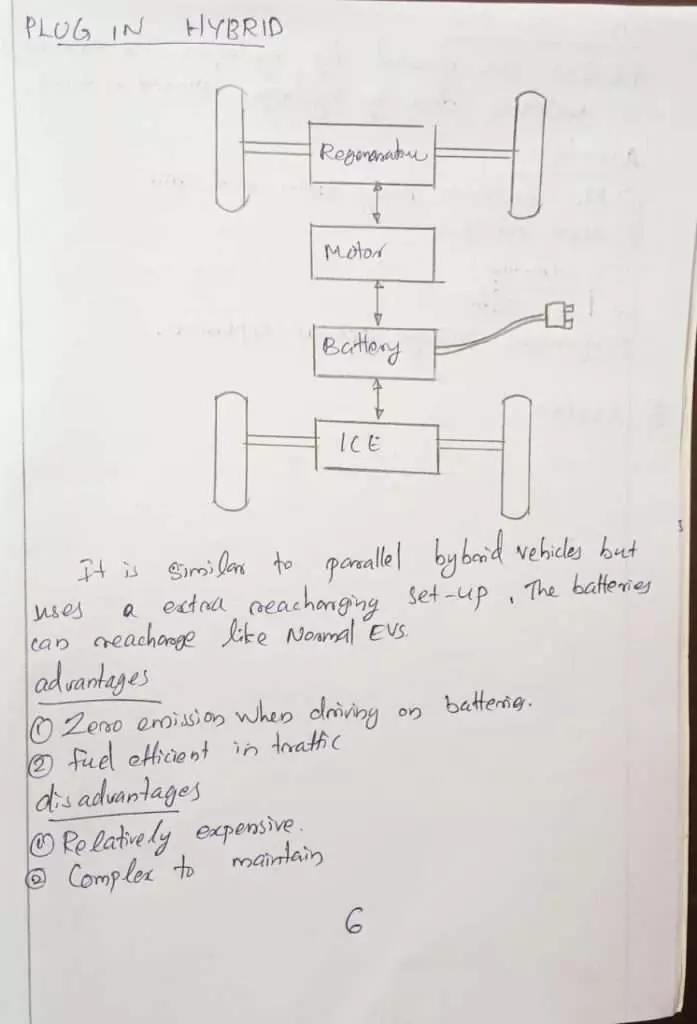 PLUG IN HYBRID
Regenerative
Motor
Battery
ICE
It is similar to parallel hybrid vehicles but
uses a extra reacharging set-up, The batteries
can reacharge like Normal EVs.
advantages
① Zero emission when driving on batteries.
② fuel efficient in traffic
disadvantages
① Relatively expensive.
② Complex to maintain
6